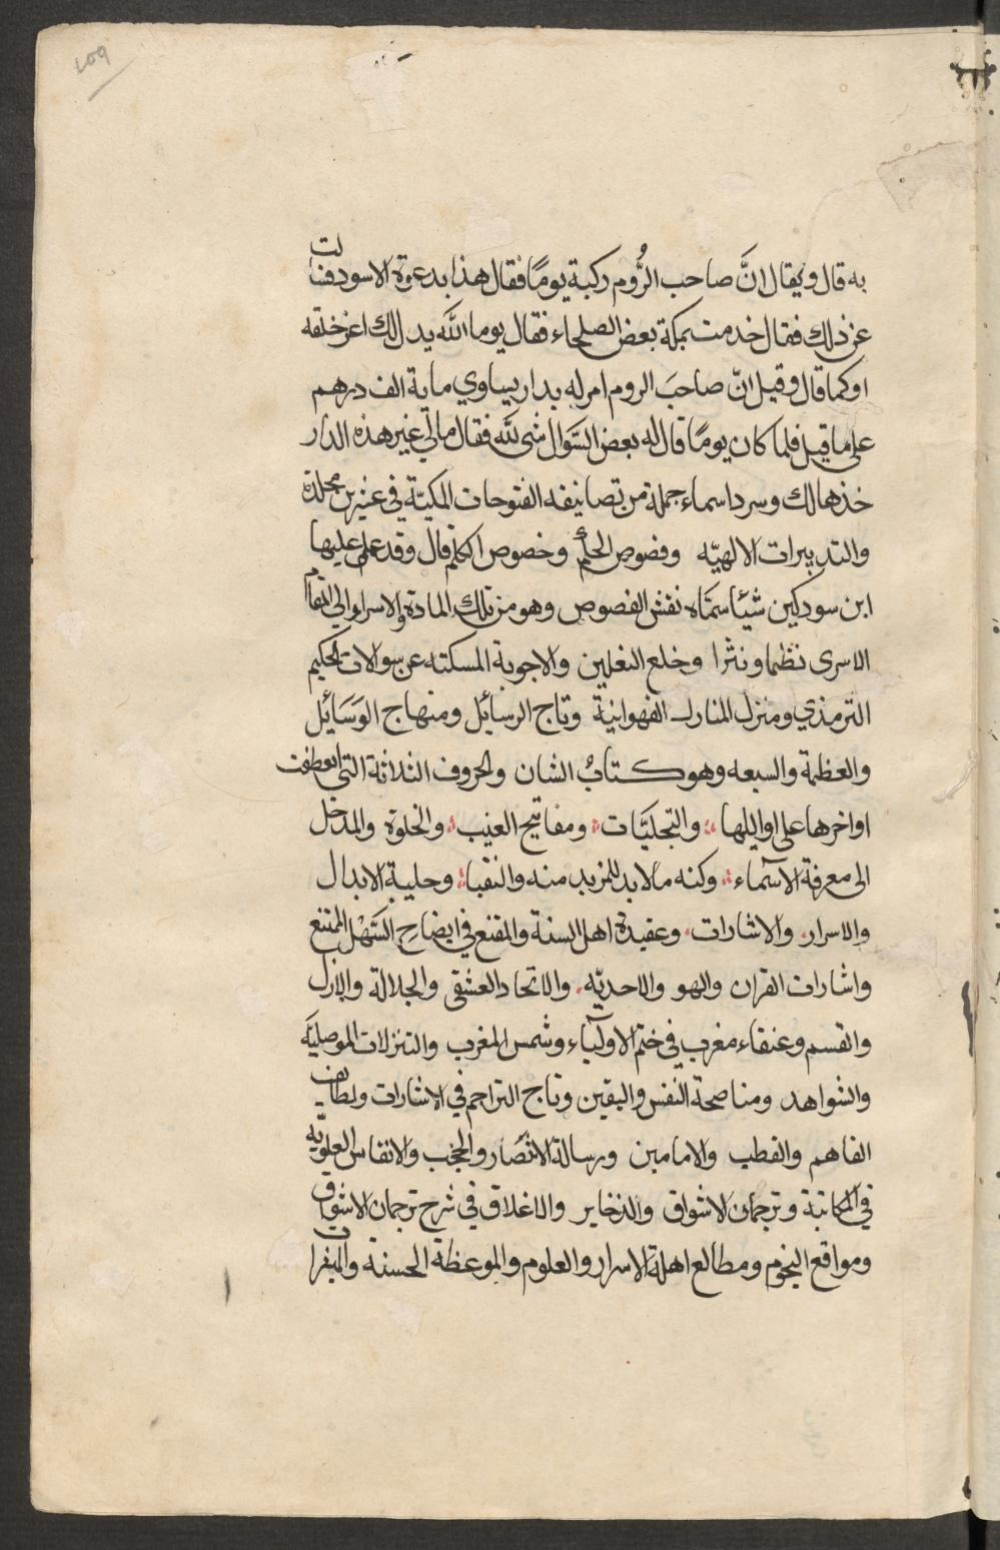 ١٥٩
به قال ويقال انَّ صاحب الرُّوم ركبة يومًا فقال هذا بدعوة الاسود فقلت
عن ذلك فقال خدمت بمكة بعض الصلحاء فقال يوما الله يدل لك اعز خلقه
او كما قال وقيل انّ صاحبَ الروم امر له بدار يساوي ماية الف درهم
على ما قيل فلما كان يومًا قال له بعض السَّوال شى لله فقال مالي غير هذه الدار
خذها لك وسرد اسماء جملة من تصانيفه الفتوحات المكيّة في عشرين مجلدة
والتدبيرات الالهيّه وفصوص الحكم وخصوص الكلم قال وقد عمل عليها
ابن سودكين شيئا سمّاه نقش الفصوص وهو من تلك المادة والاسراء الى المقام
الاسرى نظما ونثرا وخلع النعلين والاجوبة المسكته عن سوالات الحكيم
الترمذي ومنزل المنازل الفهوانية وتاج الرسائل ومنهاج الوَسَائل
والعظمة والسبعه وهو كتابُ الشان والحروف الثلاثة التي انعطفت
اواخرها على اوايلها والتجليَّات ومفاتيح الغيب والخلوة والمدخل
الى معرفة الاسمَاء وكنه مالا بد للمريد منه والنقبا وحلية الابدال
والاسرار والاشارات وعقيدة اهل السنة والمقنع في ايضاح السَهْل الممتنع
واشارات القران والهو والاحديّه والاتحاد العشقى والجلالة والازل
والقسم وعنقاء مغرب في ختم الاوليَاء وشمس المغرب والتنزلات الموصليَه
والشواهد ومناصحة النفس واليقين وتاج التراجم في الاشارات ولطايف
الفاهم والقطب والامامين ورسالة الانتصَار والحجب والانفاس العلويّه
في المكاتبة وترجمان الاشواق والذخاير والاغلاق في شرح ترجمان الاشواق
ومواقع النجوم ومطالع اهلة الاسرار والعلوم والموعظة الحسنة والمبشرات